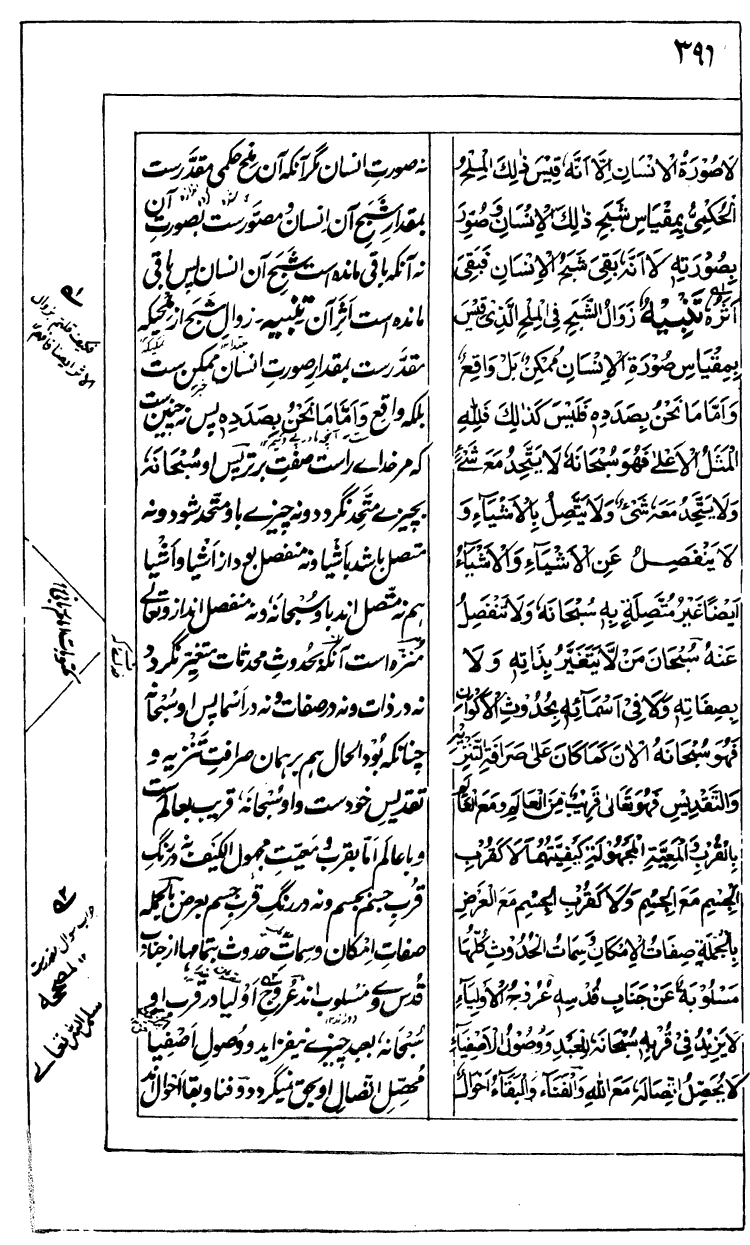 ۳۹۱
لَا صُوْرَةُ الْاِنْسَانِ اِلَّا اَنَّهٗ قِيْسَ ذٰلِكَ الْمِلْحُ
الْحُكْمِيُّ بِمِقْيَاسِ شَبَحِ ذٰلِكَ الْاِنْسَانِ وَصُوِّرَ
بِصُوْرَتِهٖ لَا اَنَّهٗ بَقِيَ شَبَحُ الْاِنْسَانِ فَبَقِيَ
اَثَرُهٗ تَنْبِيْهٌ زَوَالُ الشَّبَحِ فِي الْمِلْحِ الَّذِيْ قِيْسَ
بِمِقْيَاسِ صُوْرَةِ الْاِنْسَانِ مُمْكِنٌ بَلْ وَاقِعٌ
وَاَمَّا مَا نَحْنُ بِصَدَدِهٖ فَلَيْسَ كَذٰلِكَ فَلِلّٰهِ
الْمَثَلُ الْاَعْلٰى فَهُوَ سُبْحَانَهٗ لَا يَتَّحِدُ مَعَ شَيْءٍ
وَلَا يَتَّحِدُ مَعَهٗ شَيْءٌ وَلَا يَتَّصِلُ بِالْاَشْيَآءِ وَ
لَا يَنْفَصِلُ عَنِ الْاَشْيَآءِ وَالْاَشْيَآءُ
اَيْضًا غَيْرُ مُتَّصِلَةٍ بِهٖ سُبْحَانَهٗ وَلَا تَنْفَصِلُ
عَنْهُ سُبْحَانَ مَنْ لَّا يَتَغَيَّرُ بِذَاتِهٖ وَلَا
بِصِفَاتِهٖ وَلَا فِيْ اَسْمَآئِهٖ بِحُدُوْثِ الْاَكْوَانِ
فَهُوَ سُبْحَانَهُ الْاٰنَ كَمَا كَانَ عَلٰى صَرَافَةِ التَّنْزِيْهِ
وَالتَّقْدِيْسِ فَهُوَ تَعَالٰى قَرِيْبٌ مِنَ الْعَالَمِ وَمَعَ الْعَالَمِ
بِالْقُرْبِ وَالْمَعِيَّةِ الْمَجْهُوْلَةِ كَيْفِيَّتُهُمَا لَا كَقُرْبِ
الْجِسْمِ مَعَ الْجِسْمِ وَلَا كَقُرْبِ الْجِسْمِ مَعَ الْعَرَضِ
بِالْجُمْلَةِ صِفَاتُ الْاِمْكَانِ وَسِمَاتُ الْحُدُوْثِ كُلُّهَا
مَسْلُوْبَةٌ عَنْ جَنَابِ قُدْسِهٖ عُرُوْجُ الْاَوْلِيَآءِ
لَا يَزِيْدُ فِيْ قُرْبِهٖ سُبْحَانَهٗ لِلْعَبْدِ وَوُصُوْلُ الْاَصْفِيَآءِ
لَا يُحَصِّلُ اتِّصَالَهٗ مَعَ اللهِ وَالْفَنَآءُ وَالْبَقَآءُ اَحْوَالٌ
نہ صورتِ انسان مگر آنکہ آن ملح حکمی مقدَّرست
بمقدارِ شبحِ آن انسان و مصوَّرست بصورتِ آن
نہ آنکہ باقی ماندہ است شبحِ آن انسان پس باقی
ماندہ است اثرِ آن تنبیہ زوالِ شبح از ملحیکہ
مقدَّرست بمقدارِ صورتِ انسان ممکن ست
بلکہ واقع وَاَمَّا مَا نَحْنُ بِصَدَدِہٖ پس نہ چنین ست
کہ مر خداے راست صفتِ برتر پس او سُبْحَانَہٗ
بچیزے متَّحد نگردد و نہ چیزے باو متَّحد شود و نہ
متصل باشد باشیا و نہ منفصل بود از اشیا و اَشیا
ہم نہ متَّصل اند باو سُبحانہٗ و نہ منفصل اند از و تعالٰی
مُنزَّہ است آنکہ بحدوثِ محدثات متغیِّر نگردد
نہ در ذات و نہ در صفات و نہ در اَسما پس او سُبحانہ
چنانکہ بُود الحال ہم بر ہمان صرافتِ تنزیہ و
تقدیسِ خودست و او سُبحانہٗ قریب بعالم ست
و با عالم امّا بقرب و معیّتِ مجہول الکیف نہ در رنگِ
قُربِ جسم بجسم و نہ در رنگِ قربِ جسم بعرض بالجملہ
صفاتِ اِمکان و سِماتِ حدوث بتمامہا از جنابِ
قُدسِ وے مسلوب اند عُروجِ اَولیا در قربِ او
سُبحانہٗ بعبد چیزے نیفزاید و وصولِ اَصفیا
مُحصّلِ اتِّصالِ او بحق نمیگردد و فنا و بقا احوال اند
فکیف
سلمہ اللہ تعالے